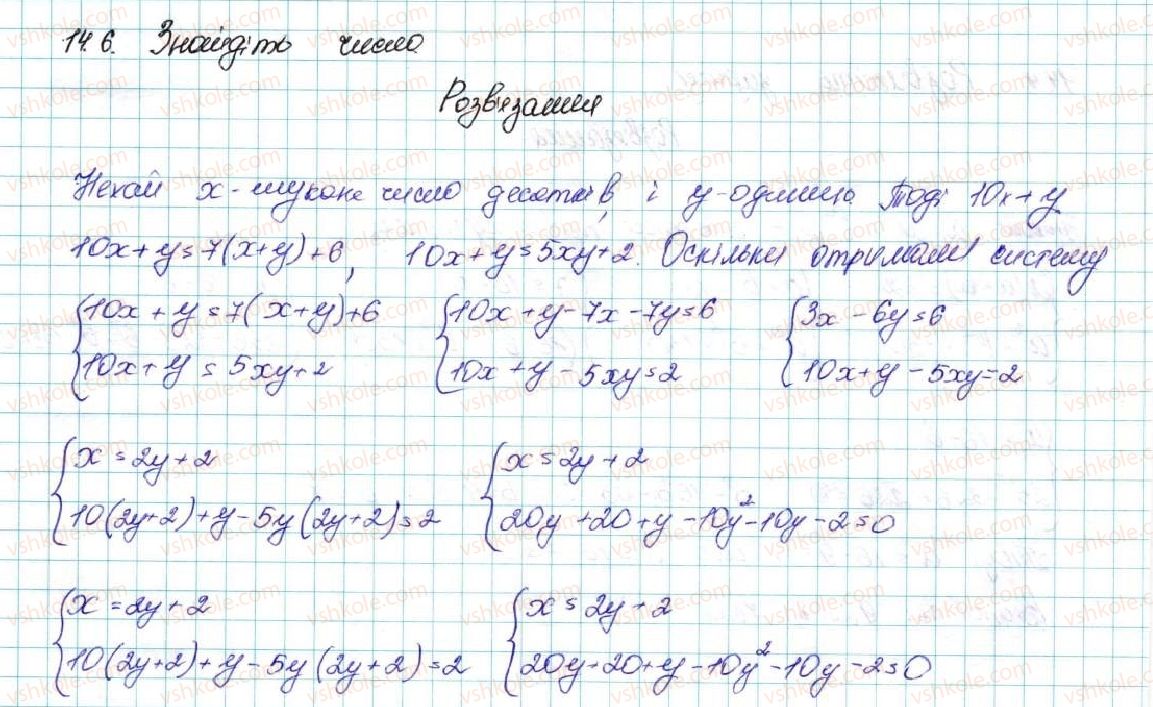 14.6. Знайдіть число
Розв'язання
Нехай x - шукане число десятків, і y - одиниць. Тоді 10x + y
10x + y = 7(x+y) + 6, 10x + y = 5xy + 2. Оскільки отримали систему
{10x + y = 7(x+y)+6 {10x + y - 7x - 7y = 6 {3x - 6y = 6
{10x + y = 5xy + 2 {10x + y - 5xy = 2 {10x + y - 5xy = 2
{x = 2y + 2 {x = 2y + 2
{10(2y+2) + y - 5y(2y+2) = 2 {20y + 20 + y - 10y² - 10y - 2 = 0
{x = 2y + 2 {x = 2y + 2
{10(2y+2) + y - 5y(2y+2) = 2 {20y + 20 + y - 10y² - 10y - 2 = 0
vshkole.com